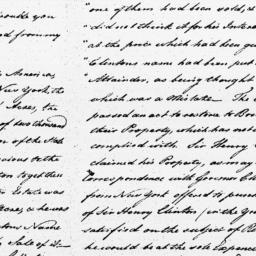 trouble you
d from my
America,
New York, the
Acres, the
of two thousand
on of the State
vious to the
ton together
Estate was
tones, as he was
tons Name
Sale of it—
"one of them had been sold,
"did not think it for his Interest
"at the price which had been
"Clintons name had been put
"Attainder, as being thought
which was a Mistake. The
passed an act to restore to
their Property, which has not
complied with. Sir Henry
claimed his Property, as may
Correspondence with Governor Cl
from New York offered to
of Sir Henry Clinton (in the
satisfied on the subject of
he would be at the sole Expence